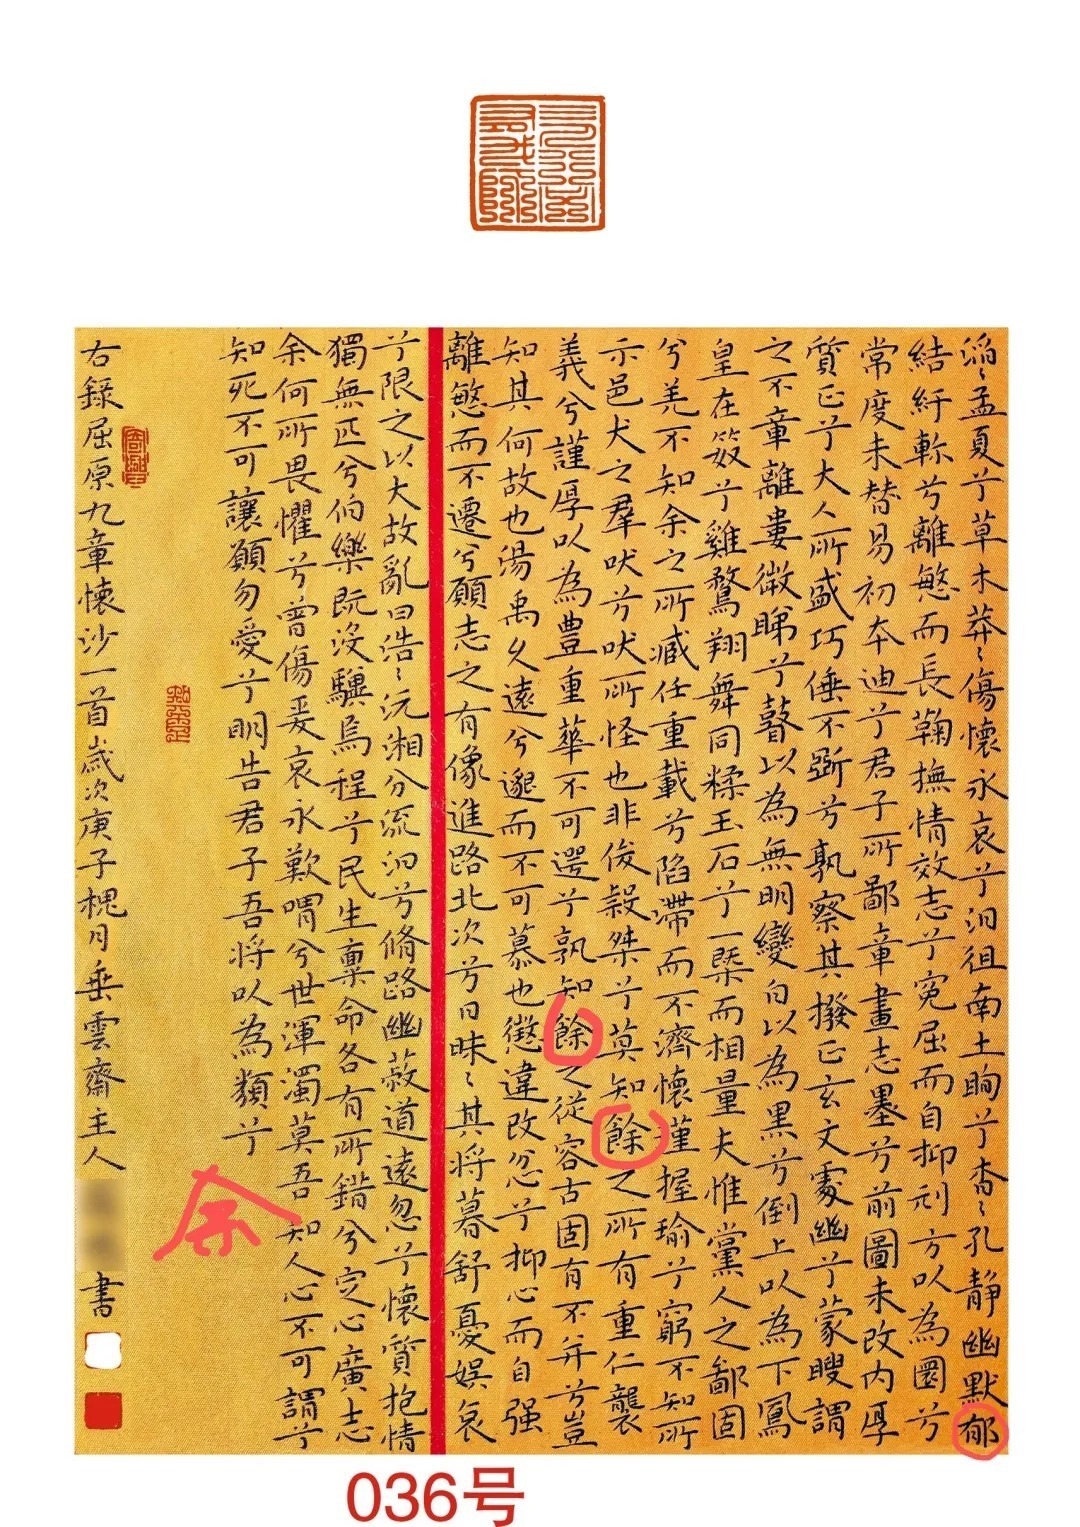 滔〻孟夏兮草木莽〻傷懷永哀兮汩徂南土眴兮杳〻孔靜幽默郁
結紆軫兮離慜而長鞠撫情效志兮冤屈而自抑刓方以為圜兮
常度未替易初本迪兮君子所鄙章畫志墨兮前圖未改內厚
質正兮大人所盛巧倕不斲兮孰察其撥正玄文處幽兮蒙瞍謂
之不章離婁微睇兮瞽以為無明變白以為黑兮倒上以為下鳳
皇在笯兮雞鶩翔舞同糅玉石兮一槩而相量夫惟黨人之鄙固
兮羌不知余之所臧任重載兮陷滯而不濟懷瑾握瑜兮窮不知所
示邑犬之羣吠兮吠所怪也非俊桀兮莫知餘之所有重仁襲
義兮謹厚以為豐重華不可遻兮孰知餘之從容古固有不并兮豈
知其何故也湯禹久遠兮邈而不可慕也懲違改忿兮抑心而自强
離慜而不遷兮願志之有像進路北次兮日昧〻其將暮舒憂娛哀
兮限之以大故亂曰浩〻沅湘分流汩兮脩路幽蔽道遠忽兮懷質抱情
獨無匹兮伯樂既沒驥焉程兮民生稟命各有所錯兮定心廣志
余何所畏懼兮曾傷爰哀永歎喟兮世渾濁莫吾知人心不可謂兮
知死不可讓願勿愛兮明告君子吾將以為類兮
余
右錄屈原九章懷沙一首歲次庚子槐月垂雲齋主人
書
036号